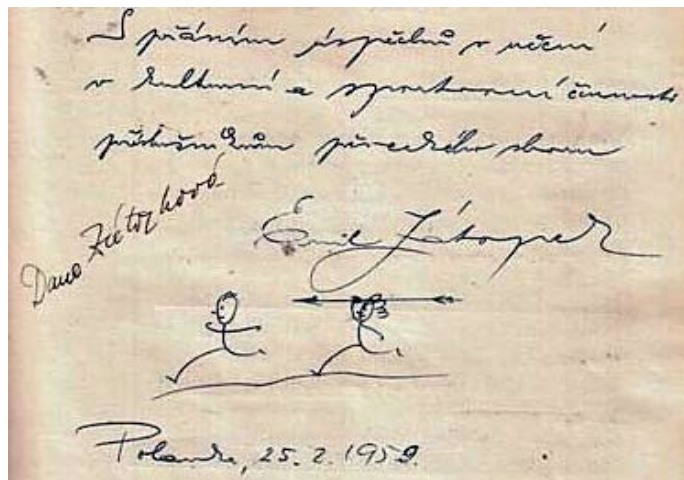 S přáním úspěchů v učení
v kulturní a sportovní činnosti
příslušníkům pěveckého sboru
Dana Zátopková
Emil Zátopek
Polanka, 25. 2. 1959.